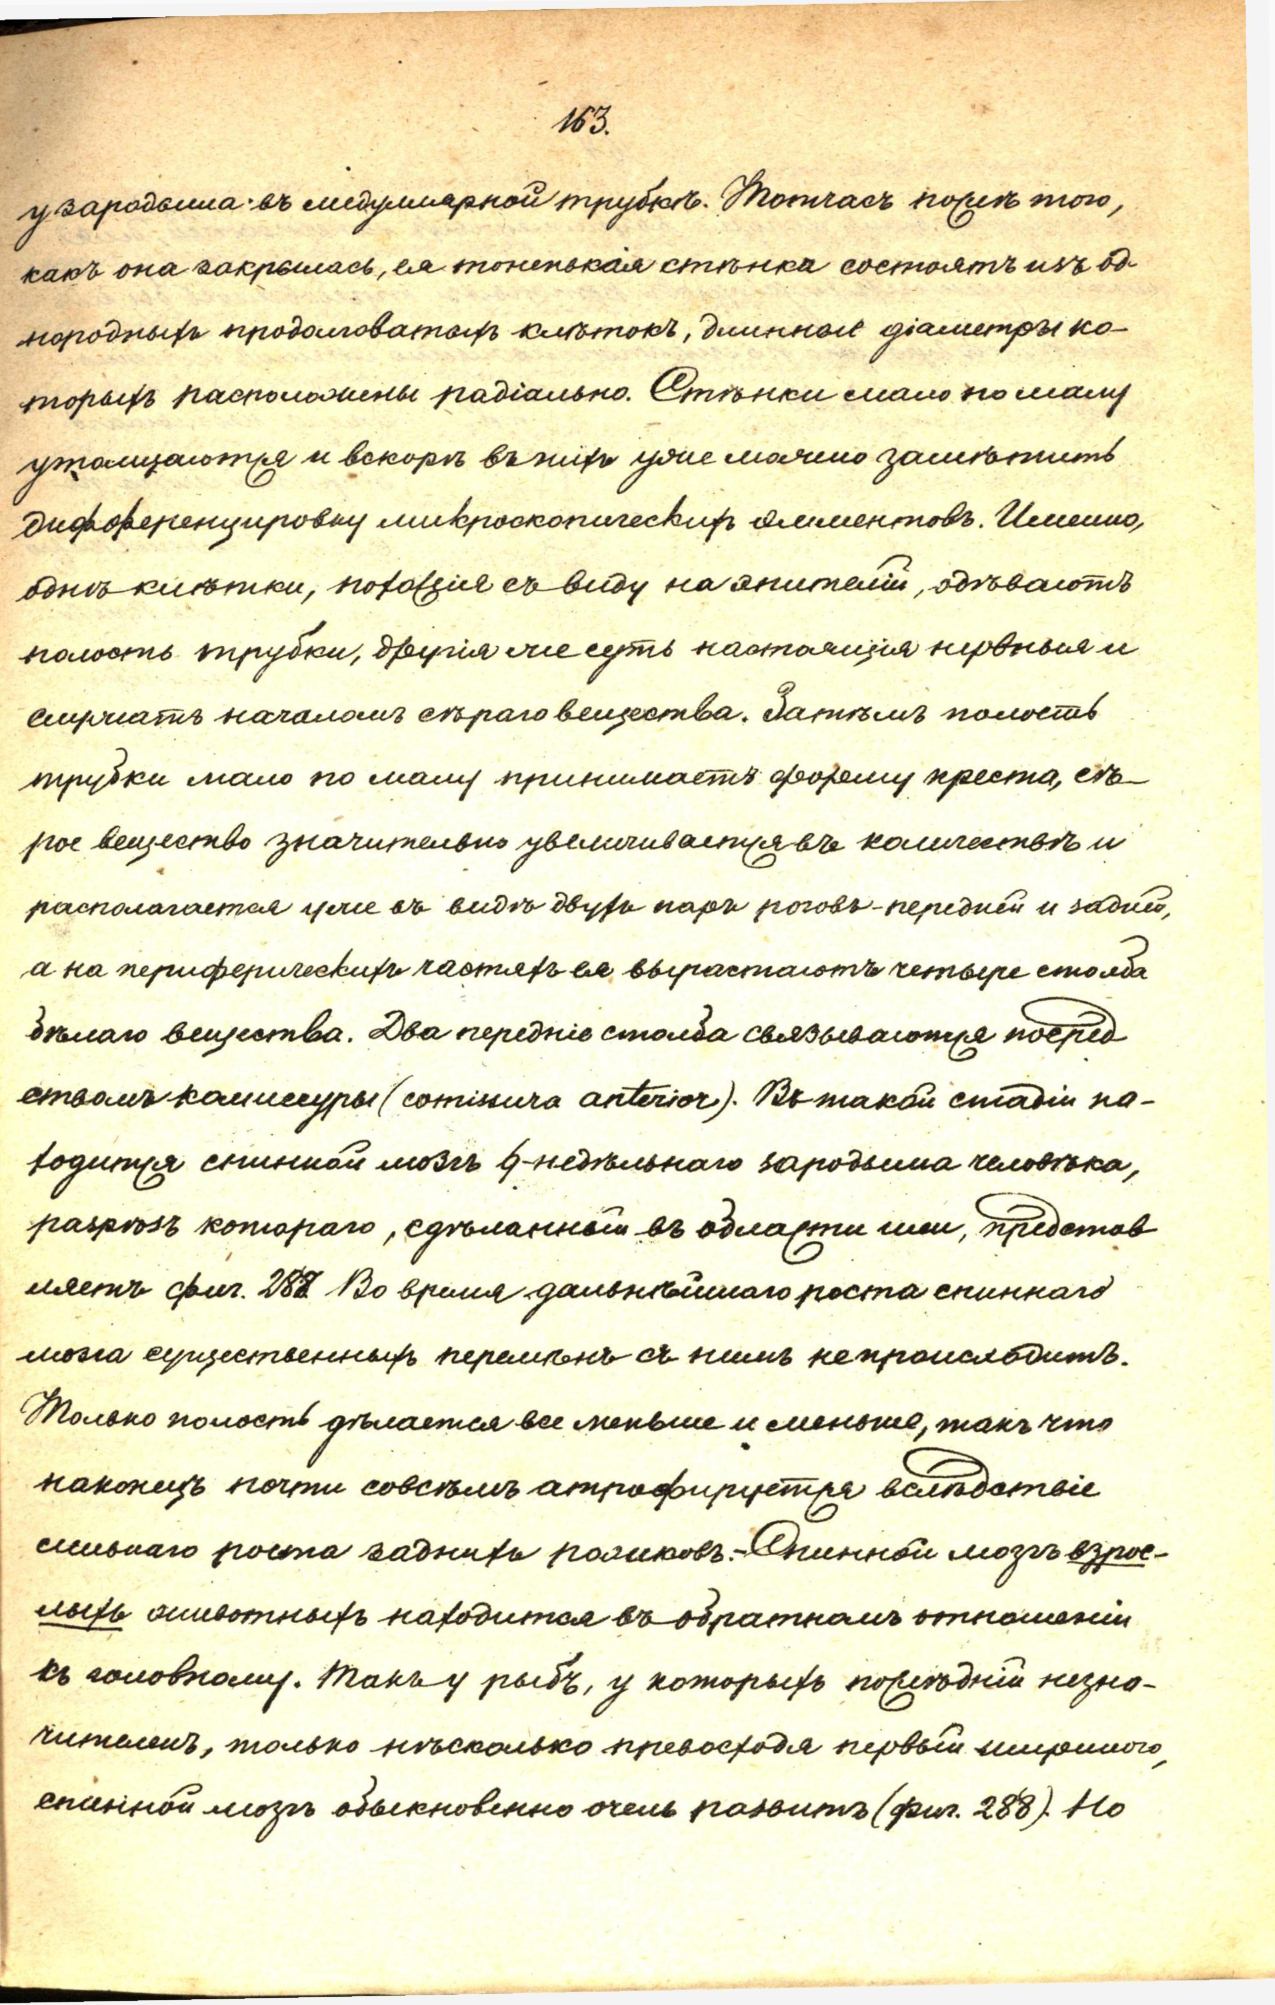 163.
у зародыша въ медуллярной трубкѣ. Тотчасъ послѣ того,
какъ она закрылась, ея тоненькая стѣнка состоятъ изъ од-
нородныхъ продолговатыхъ клѣтокъ, длинные діаметры ко-
торыхъ расположены радіально. Стѣнки мало по малу
утолщаются и вскорѣ въ нихъ уже можно замѣтить
дифференцировку микроскопическихъ элементовъ. Именно,
однѣ клѣтки, похожія съ виду на эпителій, одѣваютъ
полость трубки, другія же суть настоящія нервныя и
служатъ началомъ сѣраго вещества. Затѣмъ полость
трубки мало по малу принимаетъ форму креста, сѣ-
рое вещество значительно увеличивается въ количествѣ и
располагается уже въ видѣ двухъ паръ роговъ - передней и задней,
а на периферическихъ частяхъ ея вырастаютъ четыре столба
бѣлаго вещества. Два передніе столба связываются посред
ствомъ комиссуры (comissura anterior). Въ такой стадіи на-
ходится спинной мозгъ 6-недѣльнаго зародыша человѣка,
разрѣзъ котораго, сдѣланный въ области шеи, представ
ляетъ фиг. 288 Во время дальнѣйшаго роста спиннаго
мозга существенныхъ перемѣнъ съ нимъ не происходитъ.
Только полость дѣлается все меньше и меньше, такъ что
наконецъ почти совсѣмъ атрофируется вслѣдствіе
сильнаго роста заднихъ рожковъ. - Спинной мозгъ взрос-
лыхъ животныхъ находится въ обратномъ отношеніи
къ головному. Такъ у рыбъ, у которыхъ послѣдній незна-
чителенъ, только нѣсколько превосходя первый шириною,
спинной мозгъ обыкновенно очень развитъ (фиг. 288). Но